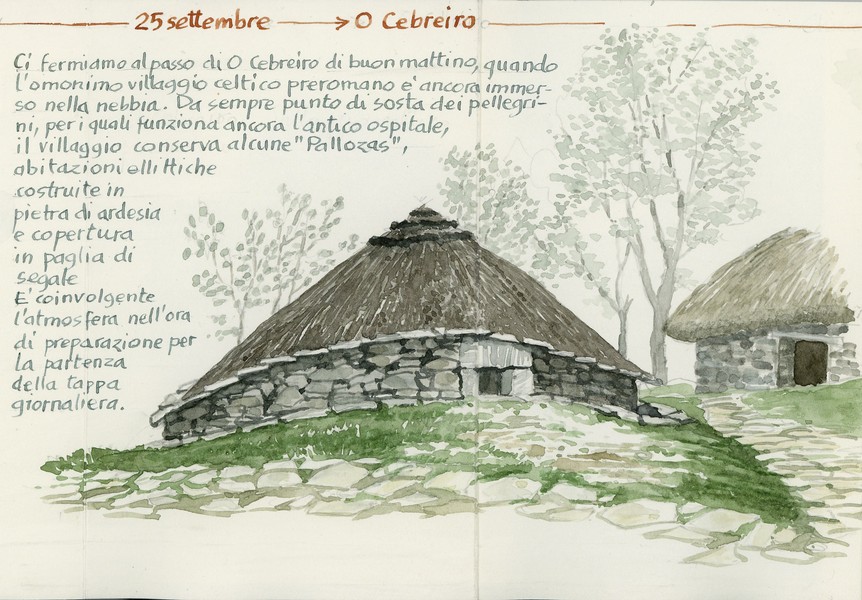 25 settembre → O Cebreiro
Ci fermiamo al passo di O Cebreiro di buon mattino, quando
l'omonimo villaggio celtico preromano e' ancora immer-
so nella nebbia. Da sempre punto di sosta dei pellegri-
ni, per i quali funziona ancora l'antico ospitale,
il villaggio conserva alcune "Pallozas",
abitazioni ellittiche
costruite in
pietra di ardesia
e copertura
in paglia di
segale
E' coinvolgente
l'atmosfera nell'ora
di preparazione per
la partenza
della tappa
giornaliera.